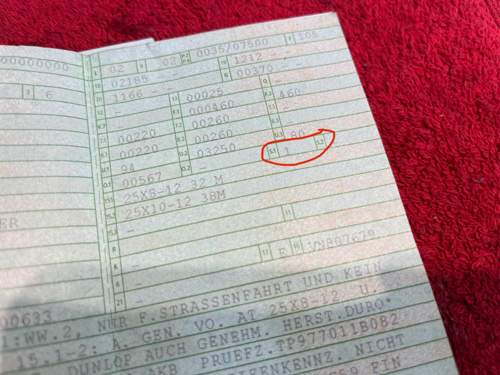 00000000 02 02 0035/07500 108
02185 - - 1212 - -
6 1166 - - 00370 - -
- 00025 -
- 000460 460
00220 00260 -
00220 00260 80
94 03250 S.1 1 S.2
00567 -
25X8-12 32 M
25X10-12 38M
-
-
- E VN807679
-
00633
1:WW.2, NUR F.STRASSENFAHRT UND KEIN
15.1-2: A. GEN. VO. AT 25X8-12, U.
DUNLOP AUCH GENEHM. HERST.DURO*
PRUEFZ.TP977011B0B2
EIFENKENNZ. NICHT